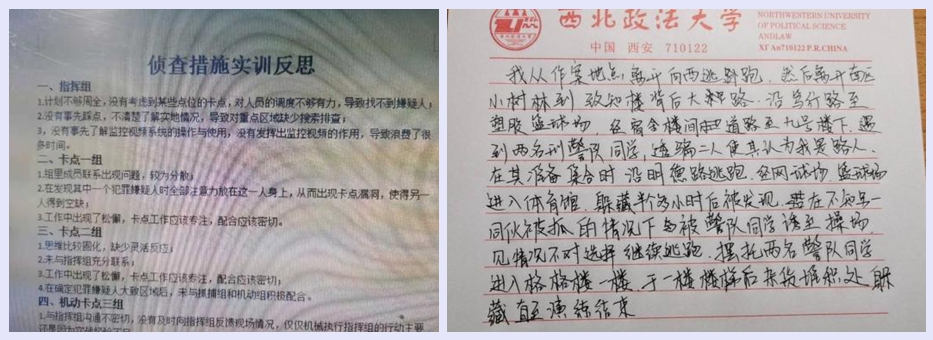 侦查措施实训反思
一、指挥组
1.计划不够周全,没有考虑到某些点位的卡点,对人员的调度不够有力,导致找不到嫌疑人;
2.没有事先踩点,不清楚了解实地情况,导致对重点区域缺少搜索排查;
3,没有事先了解监控视频系统的操作与使用,没有发挥出监控视频的作用,导致浪费了很
多时间。
二、卡点一组
1.组里成员联系出现问题,较为分散;
2.在发现其中一个犯罪嫌疑人时全部注意力放在这一人身上,从而出现卡点漏洞,使得另一
人得到空缺;
3.工作中出现了松懈,卡点工作应该专注,配合应该密切。
三、卡点二组
1.思维比较固化,缺少灵活反应;
2.未与指挥组充分联系;
3.工作中出现了松懈,卡点工作应该专注,配合应该密切;
4.在确定犯罪嫌疑人大致区域后,未与抓捕组和机动组积极配合。
四、机动卡点三组
1.与指挥组沟通不密切,没有及时向指挥组反馈现场情况,仅仅机械执行指挥组的行动主要
西北政法大学
中国 西安 710122
NORTHWESTERN UNIVERSITY
OF POLITICAL SCIENCE
ANDLAW
XI'An710122 P.R.CHINA
我从作案地点离开向西逃跑,然后离开
小树林到致知楼背后大路,沿笃行路至
塑胶篮球场,经宿舍楼间道路至九号楼下,遇
到两名刑警队同学,诱骗二人使其认为我是路人,
在其准备集合时沿明德路逃跑,经网球场 篮球场
进入体育馆,躲藏半个多小时后被发现,在不知另一
同伙被抓的情况下与被警队同学诱至操场,
见情况不对选择继续逃跑,摆托两名警队同学
进入格格楼一楼,于一楼楼梯后杂货堆积处躲
藏直至演练结束